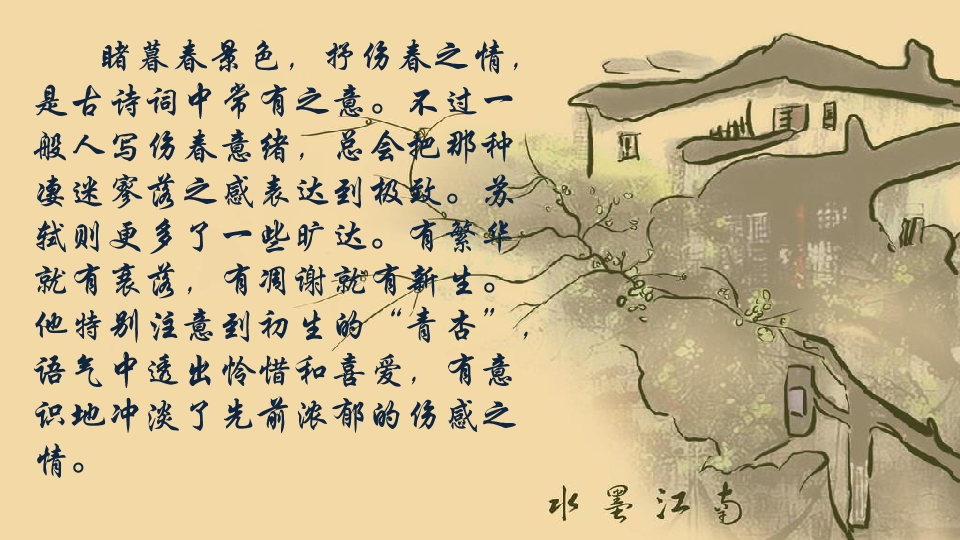 睹暮春景色，抒伤春之情，
是古诗词中常有之意。不过一
般人写伤春意绪，总会把那种
凄迷寥落之感表达到极致。苏
轼则更多了一些旷达。有繁华
就有衰落，有凋谢就有新生。
他特别注意到初生的“青杏”，
语气中透出怜惜和喜爱，有意
识地冲淡了先前浓郁的伤感之
情。
水墨江南